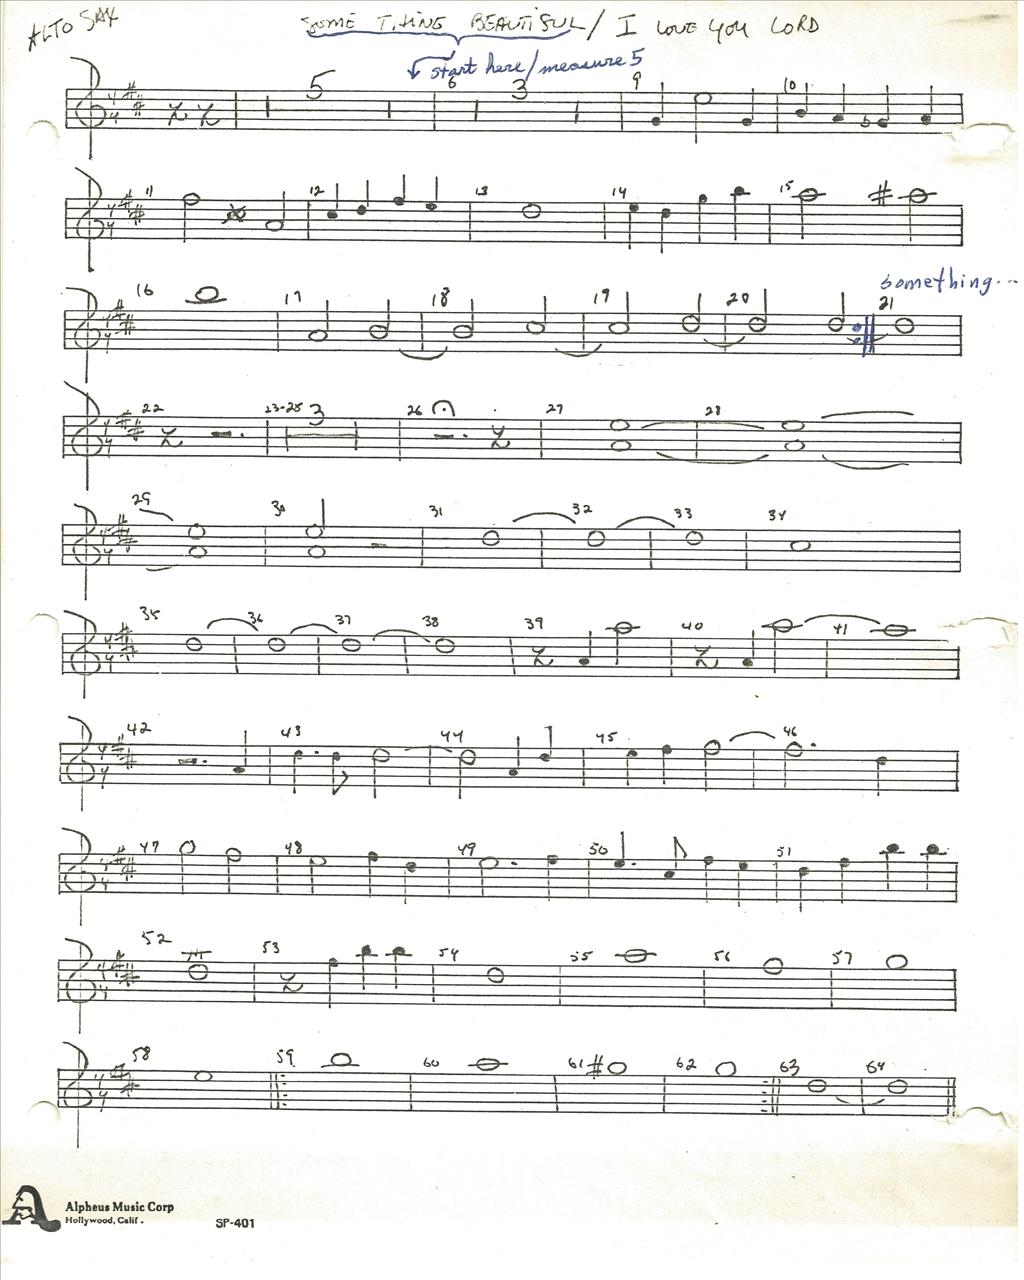 ALTO SAX
SOME THING BEAUTIFUL / I LOVE YOU LORD
start here/measure 5
5 6 3 9 10
11 12 13 14 15
something...
16 17 18 19 20 21
22 23-25 3 26 27 28
29 30 31 32 33 34
35 36 37 38 39 40 41
42 43 44 45 46
47 48 49 50 51
52 53 54 55 56 57
58 59 60 61 62 63 64
Alpheus Music Corp
Hollywood, Calif.
SP-401